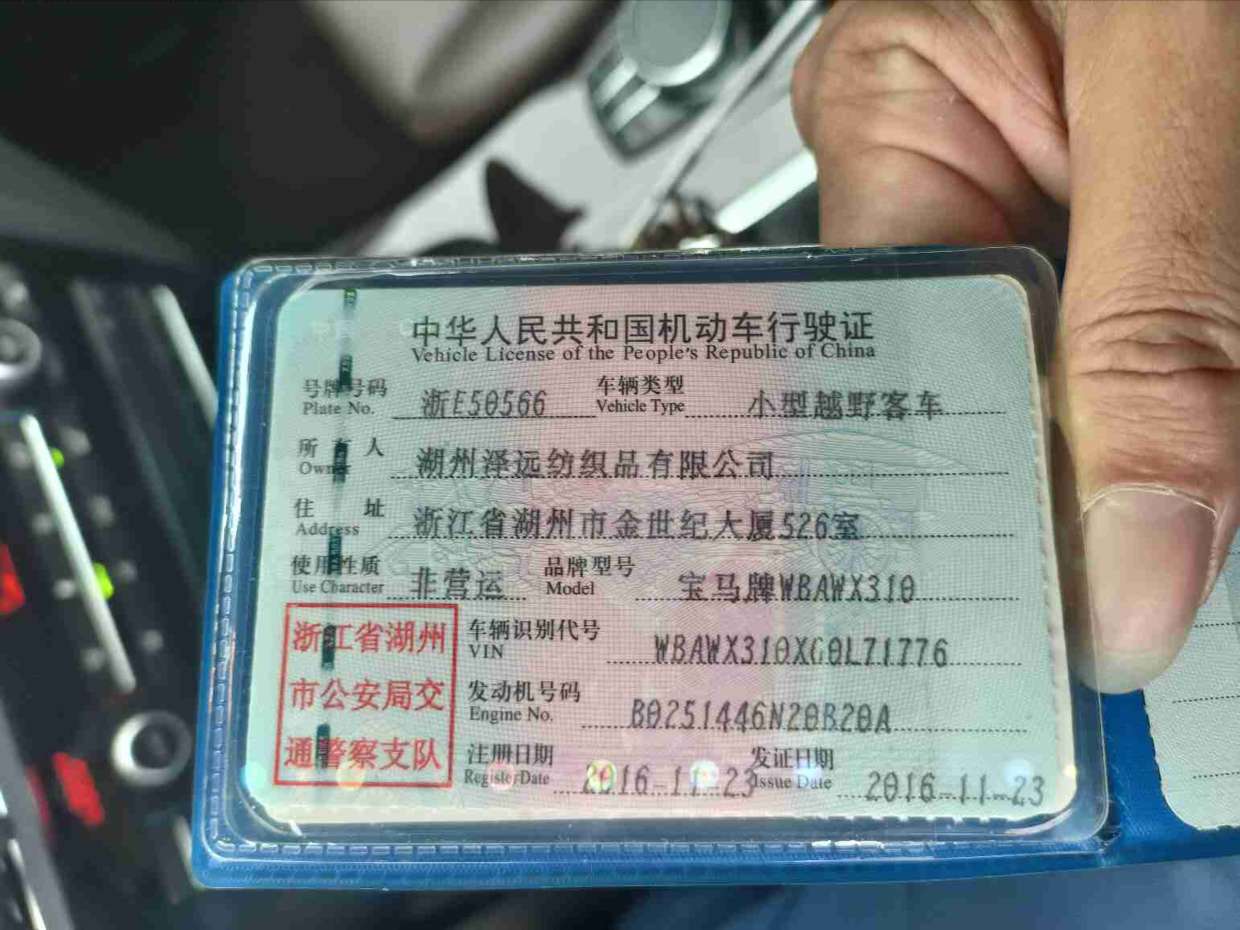 中华人民共和国机动车行驶证
Vehicle License of the People's Republic of China
号牌号码 浙E50566 车辆类型 小型越野客车
Plate No. Vehicle Type
所有人 湖州泽远纺织品有限公司
Owner
住址 浙江省湖州市金世纪大厦526室
Address
使用性质 非营运 品牌型号 宝马牌WBAWX310
Use Character Model
浙江省湖州
市公安局交
通警察支队
车辆识别代号 WBAWX310XG0L71776
VIN
发动机号码 B0251446N20B20A
Engine No.
注册日期 2016-11-23 发证日期 2016-11-23
Register Date Issue Date